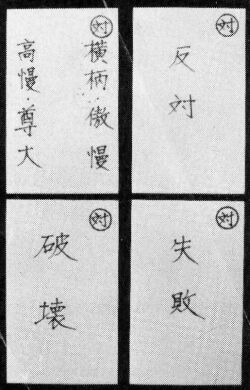 対
横柄・傲慢
高慢・尊大
対
反対
対
破壊
対
失敗